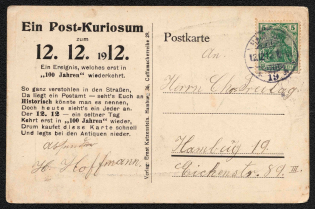 Ein Post-Kuriosum
zum
12. 12. 1912.
Ein Ereignis, welches erst in
„100 Jahren" wiederkehrt.
So ganz verstohlen in den Straßen,
Da liegt ein Postamt — seht's Euch an
Historisch könnte man es nennen,
Doch heute sieht's ein Jeder an.
Der 12. 12 — ein seltner Tag
Kehrt erst in „100 Jahren" wieder,
Drum kaufet diese Karte schnell
Und legts bei den Antiquen nieder.
Absender
H. Hoffmann.
Postkarte
An
Herrn Chs. Freitag
Hamburg 19
Eichenstr. 89 III.